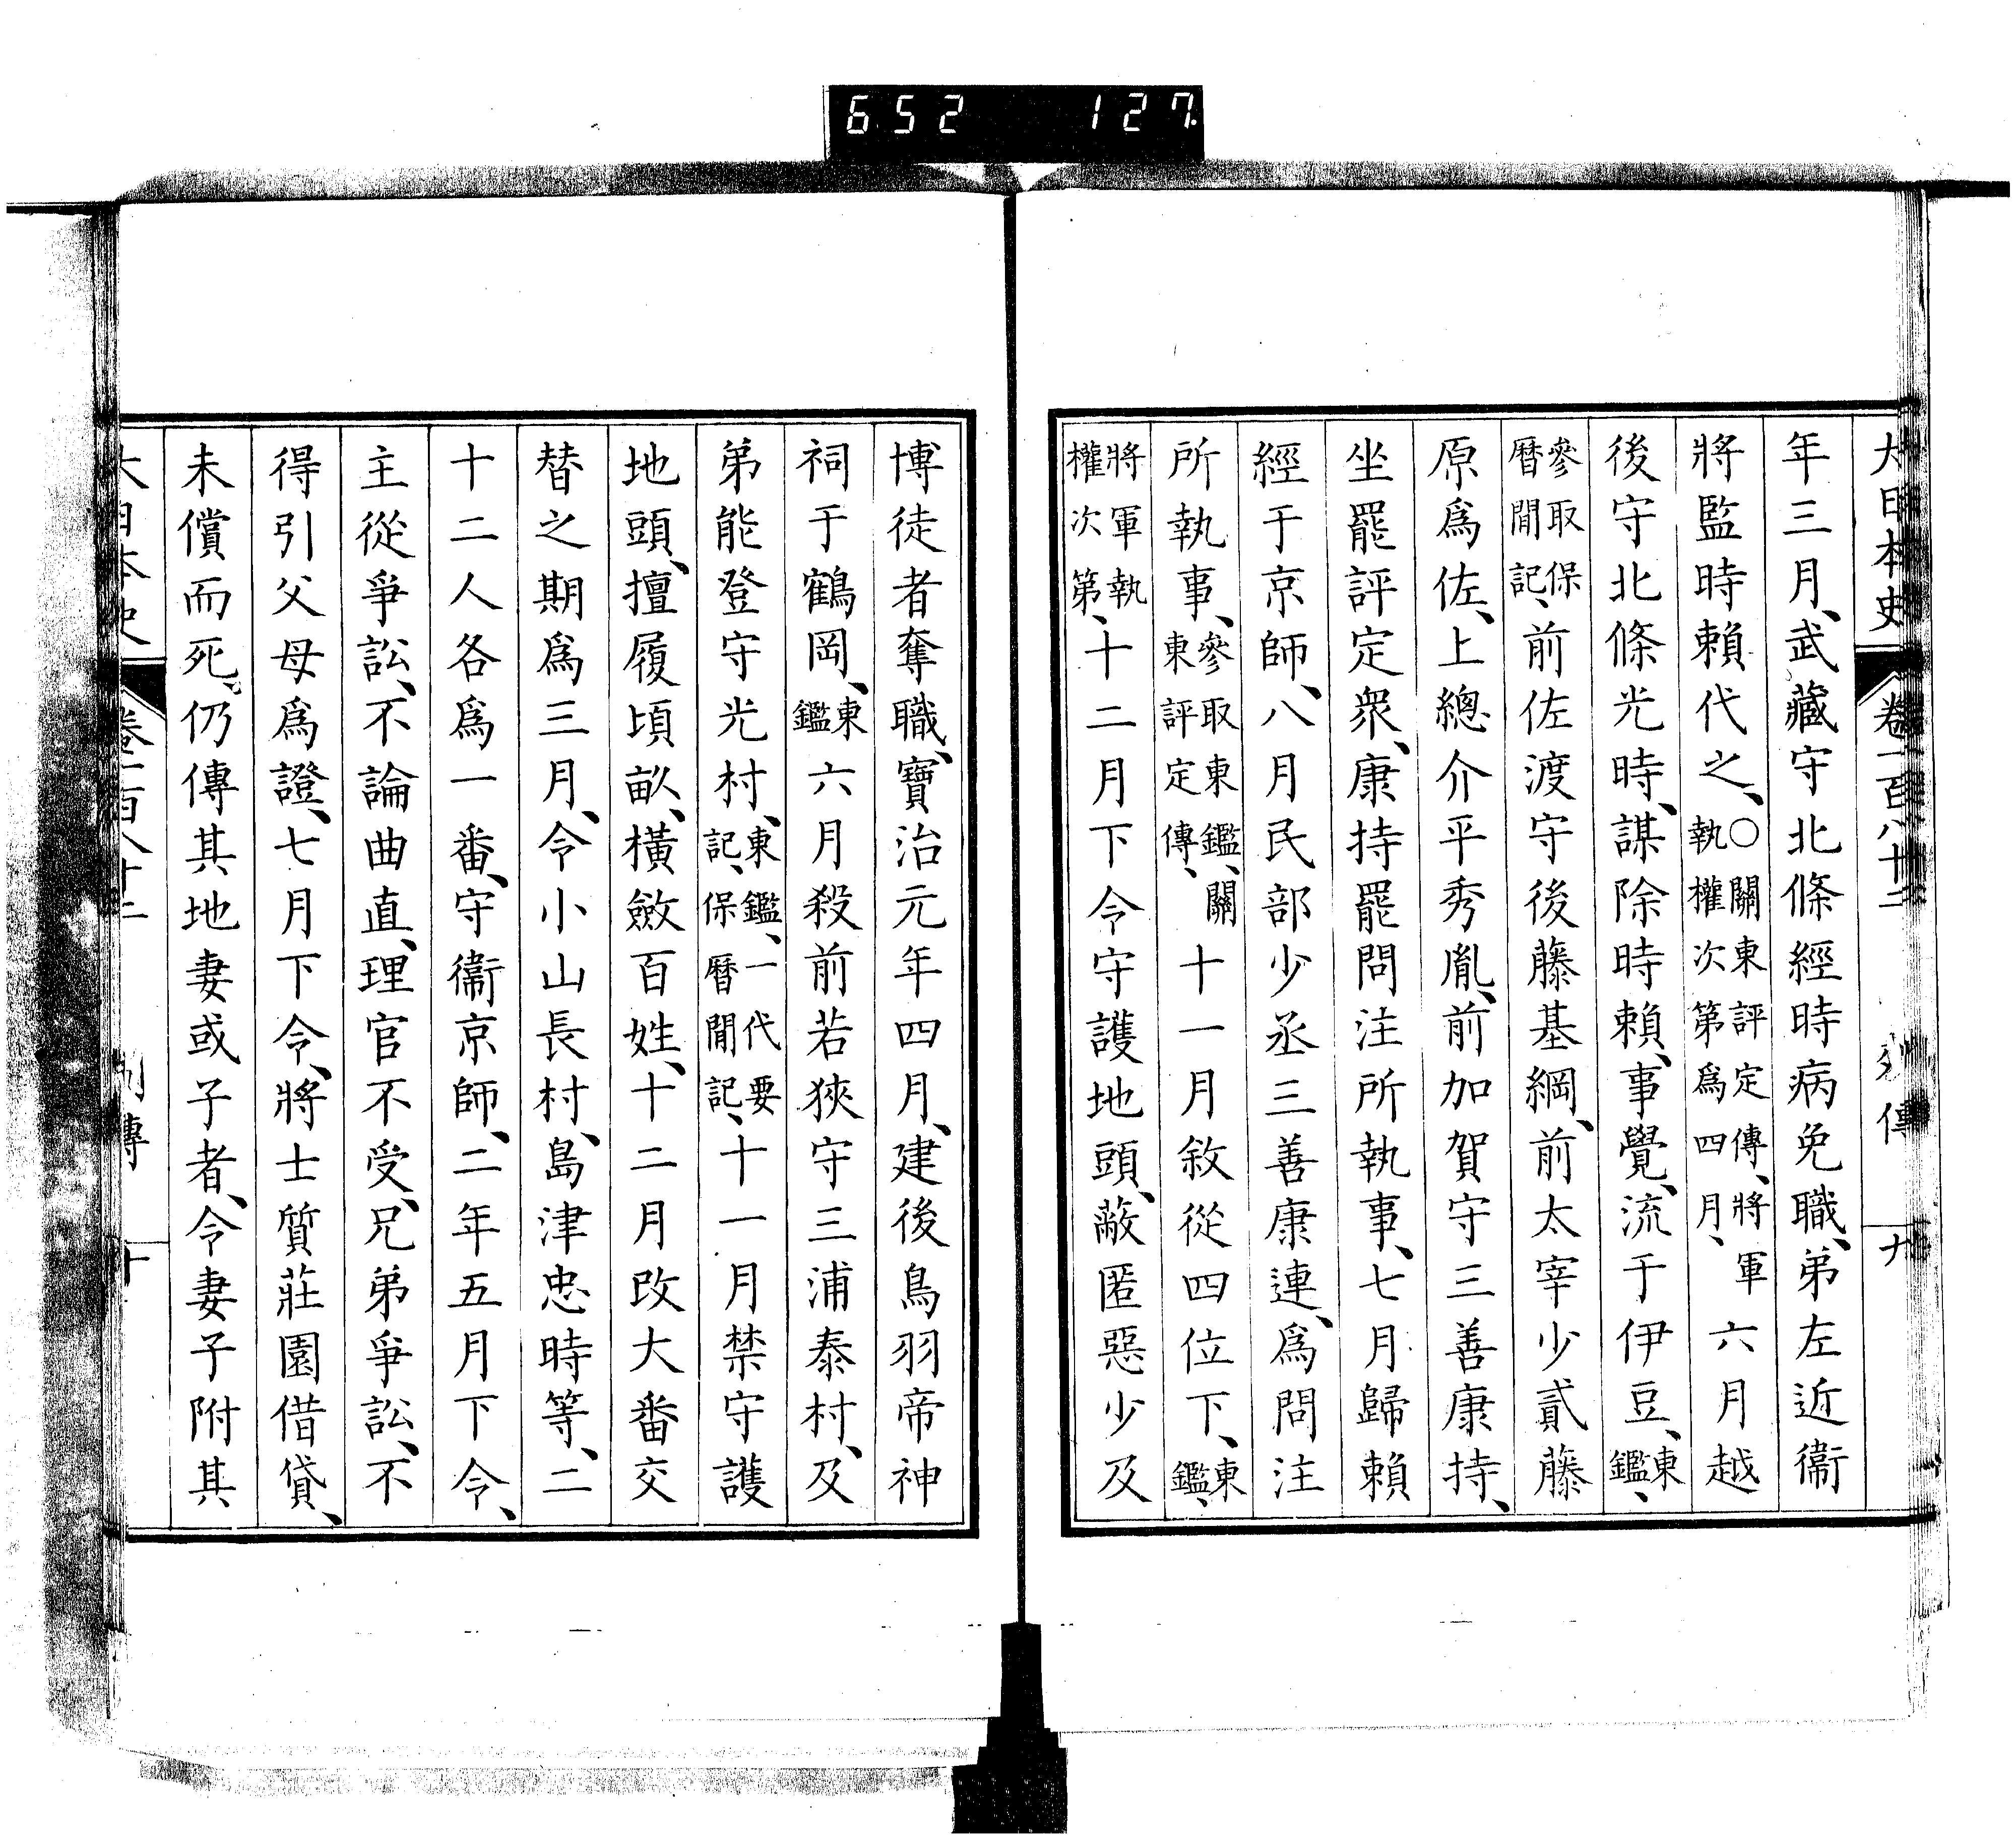 652 127
大日本史 卷一百八十二 列傳 九
年三月、武藏守北條經時病免職、弟左近衞
將監時賴代之、〇關東評定傳、將軍執權次第爲四月、六月越
後守北條光時、謀除時賴、事覺、流于伊豆、東鑑、
參取保曆間記、前佐渡守後藤基綱、前太宰少貳藤
原爲佐、上總介平秀胤、前加賀守三善康持、
坐罷評定衆、康持罷問注所執事、七月歸賴
經于京師、八月民部少丞三善康連、爲問注
所執事、參取東鑑、關東評定傳、十一月敘從四位下、東鑑、
將軍執權次第、十二月下令守護地頭、蔽匿惡少及
博徒者奪職、寶治元年四月、建後鳥羽帝神
祠于鶴岡、東鑑六月殺前若狹守三浦泰村、及
弟能登守光村、東鑑、一代要記、保曆間記、十一月禁守護
地頭、擅履頃畝、橫斂百姓、十二月改大番交
替之期爲三月、令小山長村、島津忠時等、二
十二人各爲一番、守衞京師、二年五月下令、
主從爭訟、不論曲直、理官不受、兄弟爭訟、不
得引父母爲證、七月下令、將士質莊園借貸、
未償而死、仍傳其地妻或子者、令妻子附其
大日本史 卷一百八十二 列傳 十